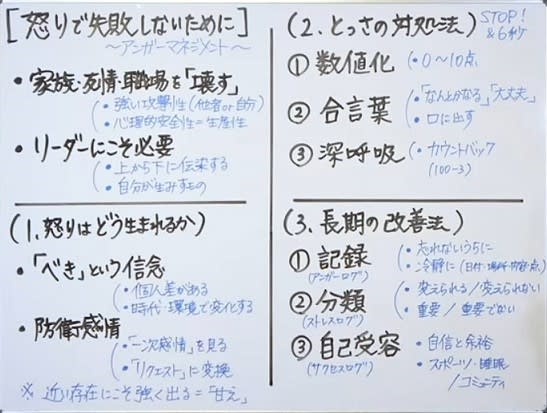 [怒りで失敗しないために]
〜アンガーマネジメント〜
・家族・友情・職場を「壊す」
・強い攻撃性(他者or自分)
・心理的安全性=生産性
・リーダーにこそ必要
・上から下に伝染する
・自分が生みすもの
(1.怒りはどう生まれるか)
・「べき」という信念
・個人差がある
・時代・環境で変化する
・防衛感情
・「一次感情」を見る
・「リクエスト」に変換
※近い存在にこそ強く出る=「甘え」
(2.とっさの対処法) STOP!
&6秒
①数値化 ・0〜10点
②合言葉 ・「なんとかなる」「大丈夫」
・口に出す
③深呼吸 ・カウントバック
(100-3)
(3.長期の改善法)
①記録 ・忘れないうちに
(アンガーログ) ・冷静に(日付・場所・内容・点)
②分類 ・変えられる/変えられない
(ストレスログ) ・重要/重要でない
③自己受容 ・自信と余裕
(サクセスログ) ・スポーツ・睡眠
/コミュニティ